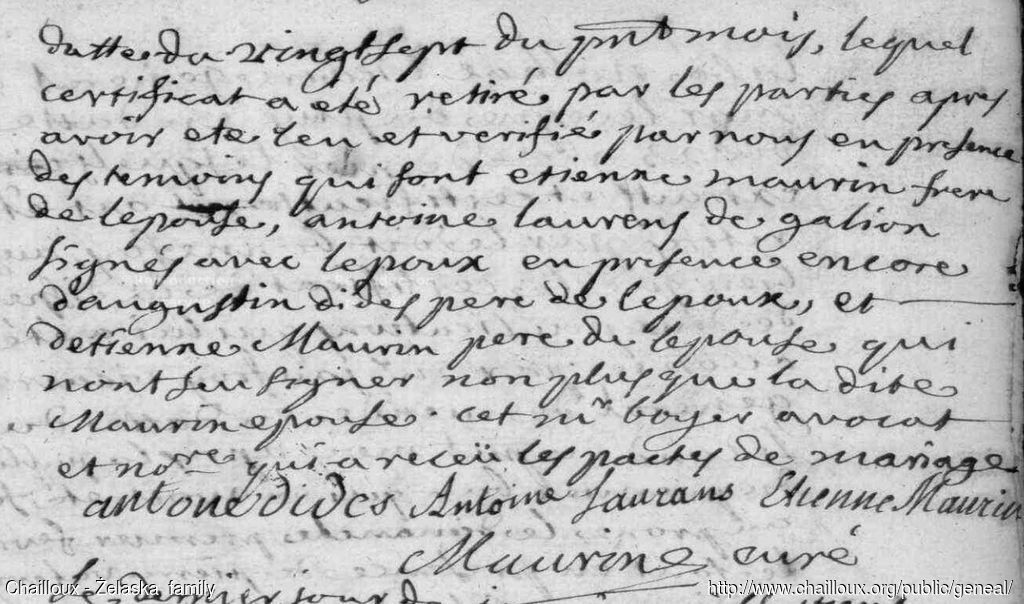 datte du vingt sept du pnt mois, lequel
certificat a eté retiré par les parties apres
avoir ete leu et verifié par nous en presence
des temoins qui sont etienne maurin frere
de lepouse, antoine laurens de galion
signés avec lepoux en presence encore
daugustin dides pere de lepoux, et
detienne Maurin pere de lepouse qui
nont seu signer non plus que la dite
Maurin epouse cet mr boyer avocat
et nore qui a receü les pactes de mariage
antoine dides Antoine Laurans Etienne Maurin
Maurin curé
Le dernier jour de
Chailloux - Żelaska family
http://www.chailloux.org/public/geneal/